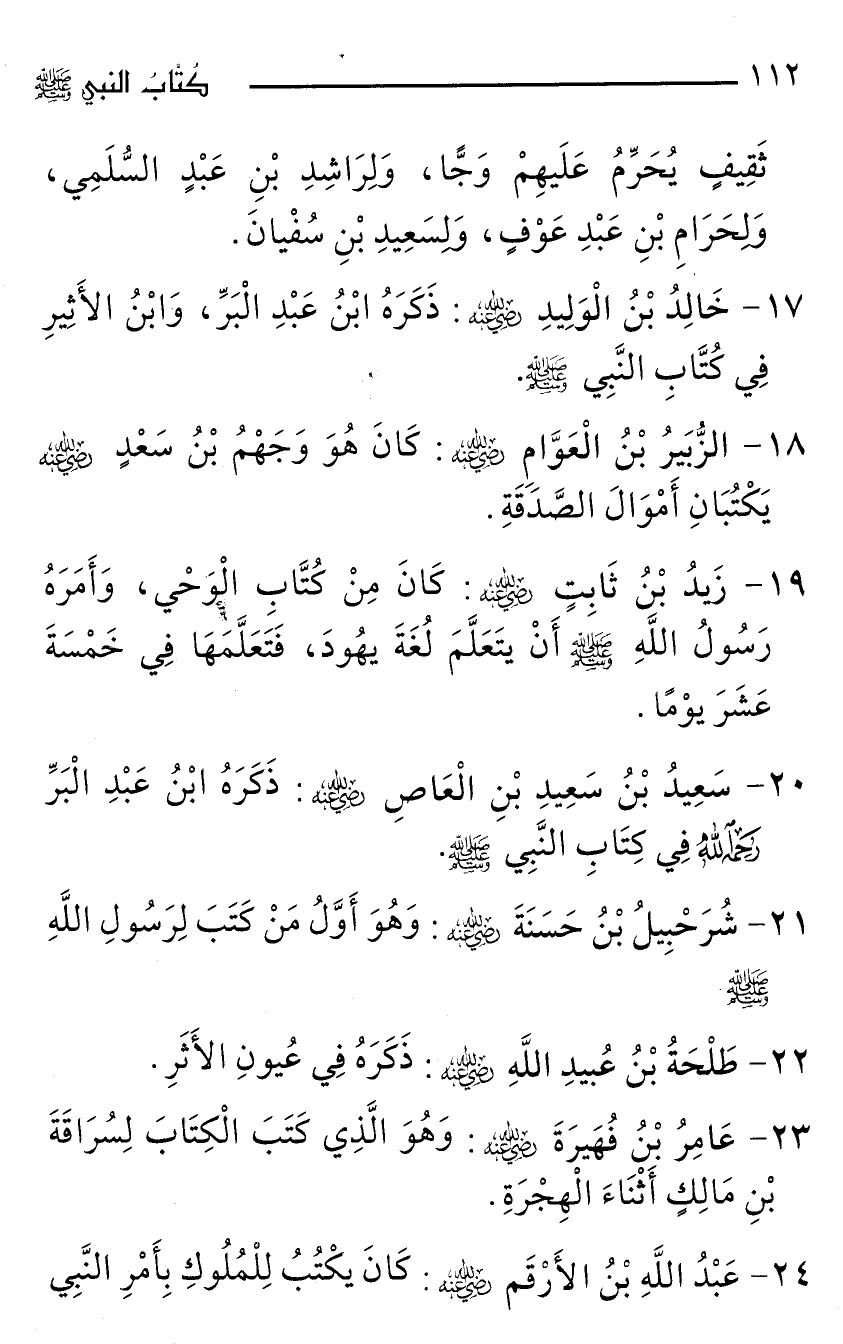 ١١٢ كُتَّابُ النبي ﷺ
ثَقِيفٍ يُحَرِّمُ عَلَيهِمْ وَجًّا، وَلِرَاشِدِ بْنِ عَبْدٍ السُّلَمِي،
وَلِحَرَامِ بْنِ عَبْدِ عَوْفٍ، وَلِسَعِيدِ بْنِ سُفْيانَ.
١٧- خَالِدُ بْنُ الْوَلِيدِ رضي الله عنه: ذَكَرَهُ ابْنُ عَبْدِ الْبَرِّ، وَابْنُ الأَثِيرِ
فِي كُتَّابِ النَّبِي ﷺ.
١٨- الزُّبَيرُ بْنُ الْعَوَّامِ رضي الله عنه: كَانَ هُوَ وَجَهْمُ بْنُ سَعْدٍ رضي الله عنه
يَكْتُبَانِ أَمْوَالَ الصَّدَقَةِ.
١٩- زَيدُ بْنُ ثَابِتٍ رضي الله عنه: كَانَ مِنْ كُتَّابِ الْوَحْي، وَأَمَرَهُ
رَسُولُ اللَّهِ ﷺ أَنْ يتَعَلَّمَ لُغَةَ يهُودَ، فَتَعَلَّمَهَا فِي خَمْسَةَ
عَشَرَ يوْمًا.
٢٠- سَعِيدُ بْنُ سَعِيدِ بْنِ الْعَاصِ رضي الله عنه: ذَكَرَهُ ابْنُ عَبْدِ الْبَرِّ
رحمه الله فِي كِتَابِ النَّبِي ﷺ.
٢١- شُرَحْبِيلُ بْنُ حَسَنَةَ رضي الله عنه: وَهُوَ أَوَّلُ مَنْ كَتَبَ لِرَسُولِ اللَّهِ
ﷺ.
٢٢- طَلْحَةُ بْنُ عُبيدِ اللَّهِ رضي الله عنه: ذَكَرَهُ فِي عُيونِ الأَثَرِ.
٢٣- عَامِرُ بْنُ فُهَيرَةَ رضي الله عنه: وَهُوَ الَّذِي كَتَبَ الْكِتَابَ لِسُرَاقَةَ
بْنِ مَالِكٍ أَثْنَاءَ الْهِجْرَةِ.
٢٤- عَبْدُ اللَّهِ بْنُ الأَرْقَم رضي الله عنه: كَانَ يكْتُبُ لِلْمُلُوكِ بِأَمْرِ النَّبِي